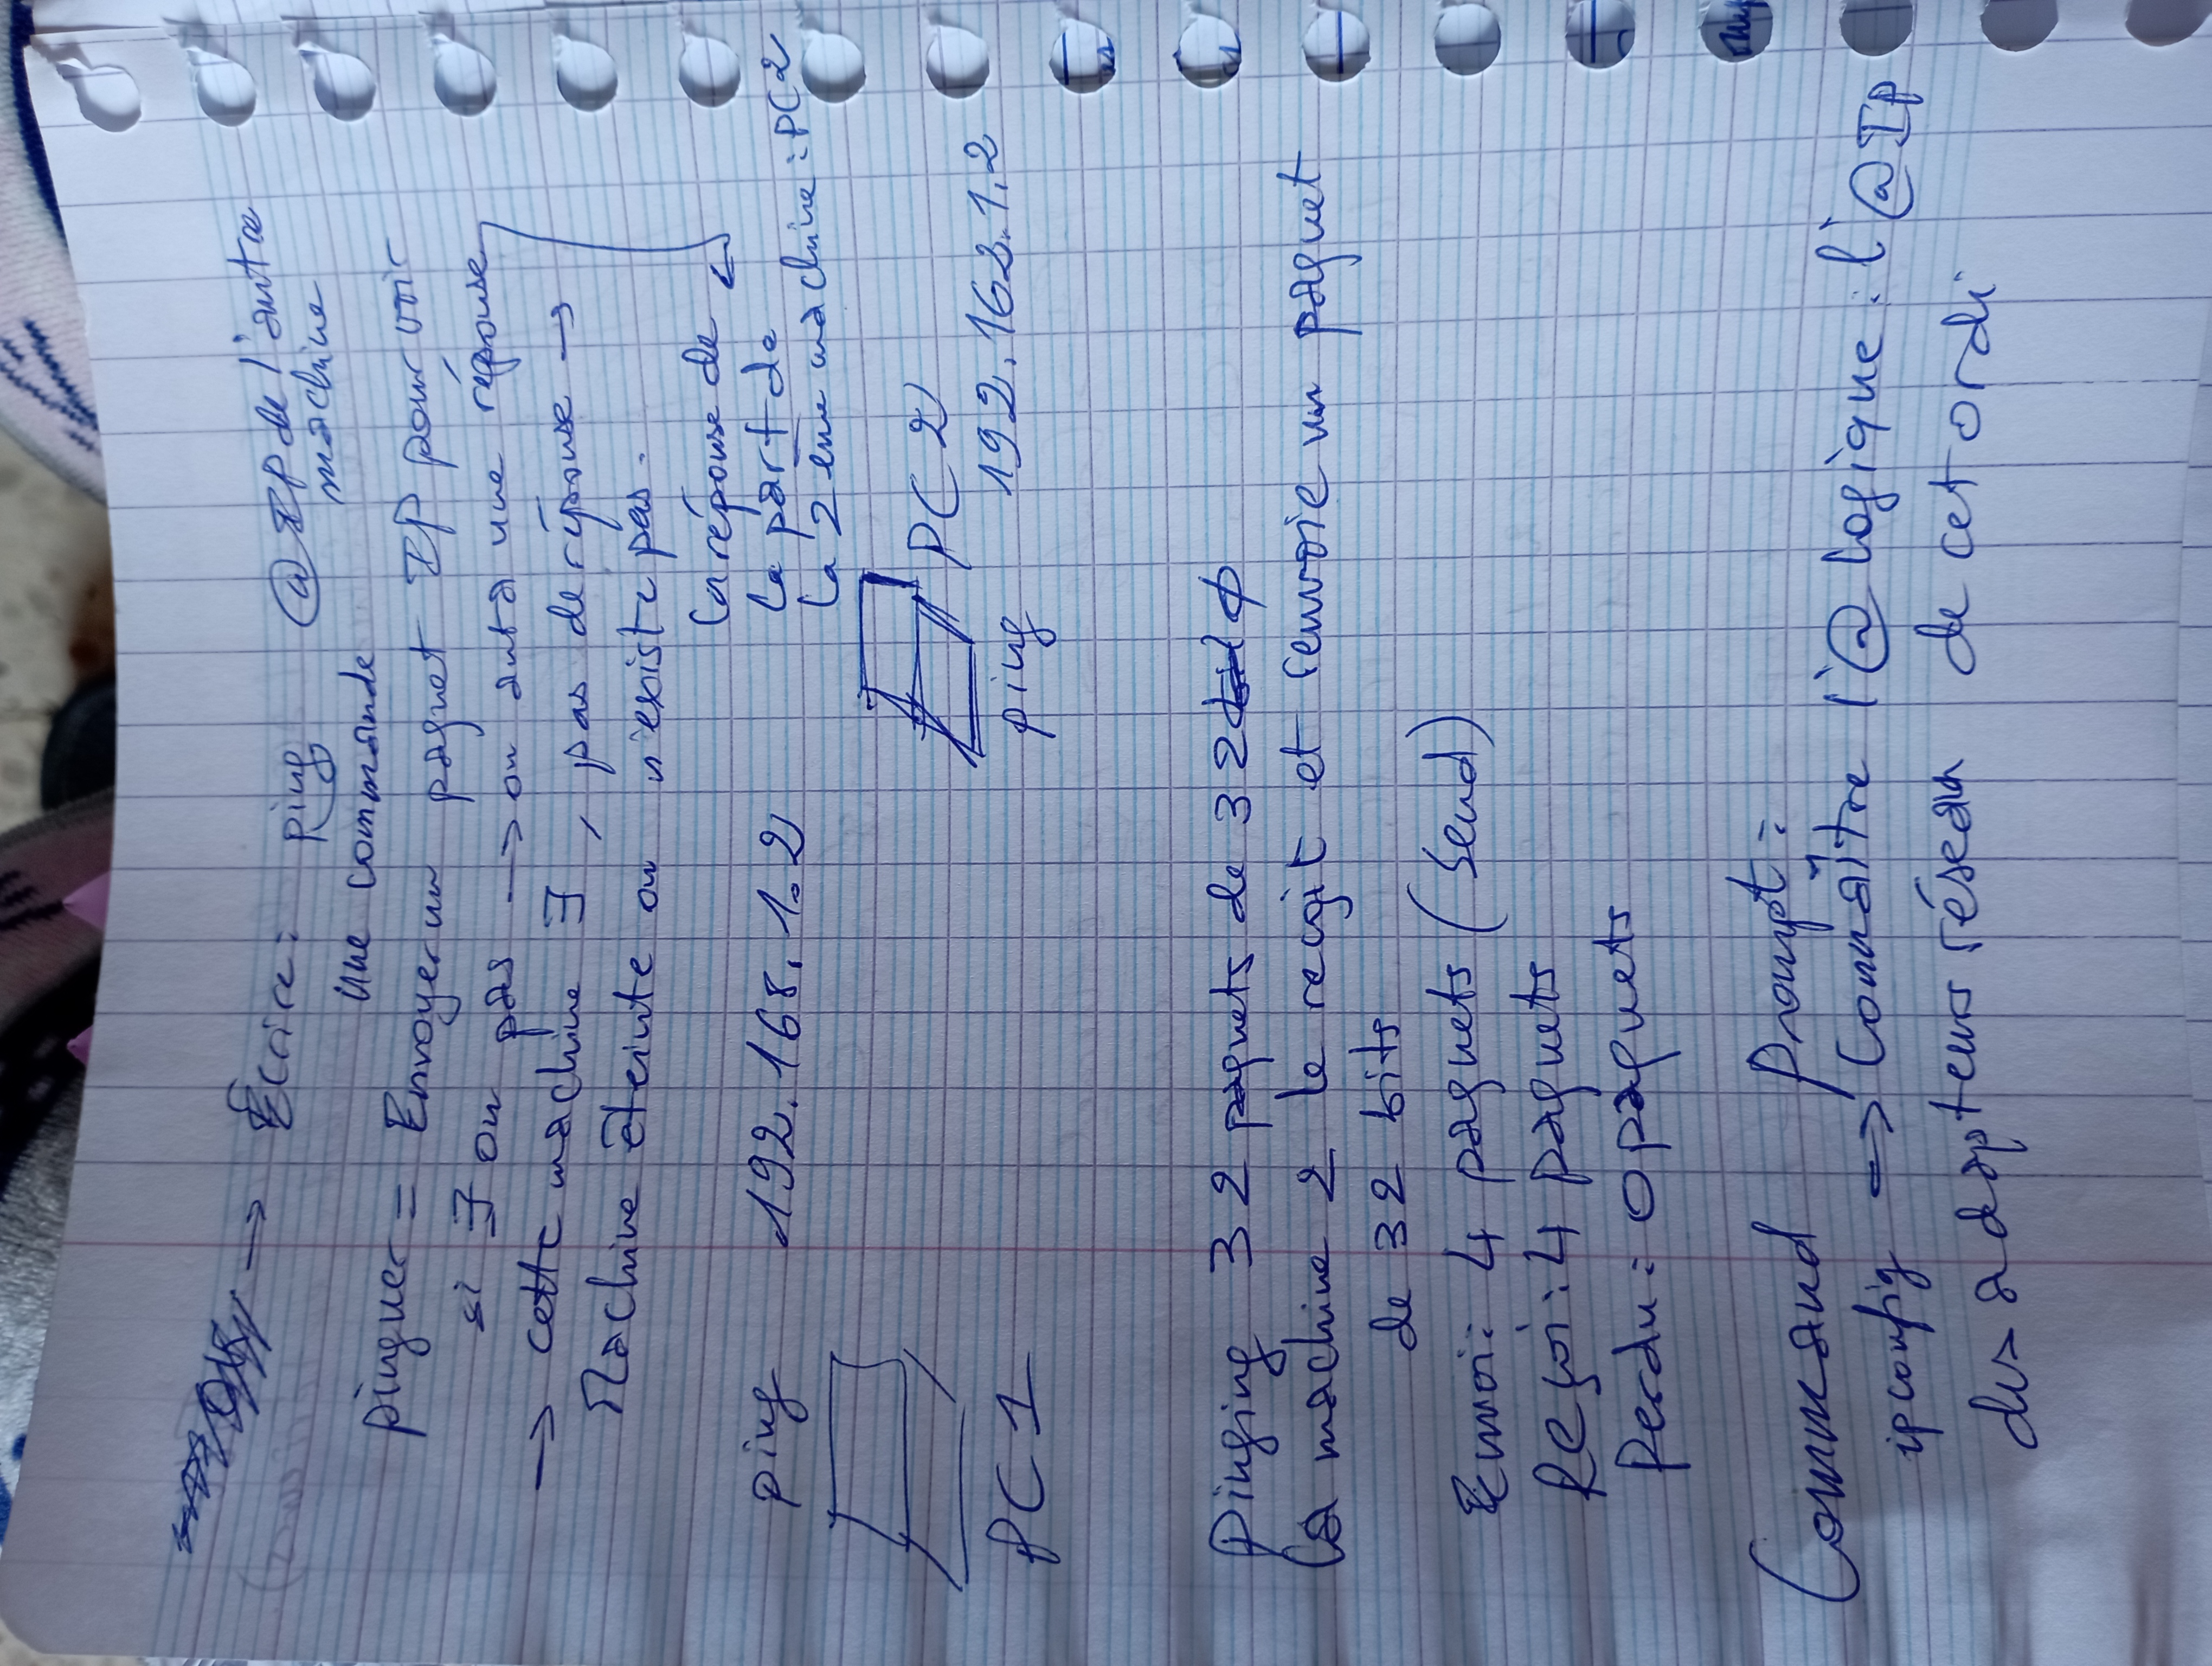 → Écrire: ping @IP de l'autre
machine
une commande
pinguer = Envoyer un paquet IP pour voir
si ∃ ou pas → on aura une réponse
→ cette machine ∃, pas de réponse →
Machine éteinte ou n'existe pas.
La réponse de ↩
la part de
la 2ème machine : PC2
ping 192.168.1.2
PC1
PC2
ping 192.168.1.2
Pinging 32 paquets de 32
la machine 2 le reçoit et renvoie un paquet
de 32 bits
Envoi: 4 paquets (Send)
Reçoi: 4 paquets
Perdu: 0 paquets
Command Prompt:
ipconfig ⇒ Connaître l'@ logique: l'@IP
des adapteurs réseau de cet ordi